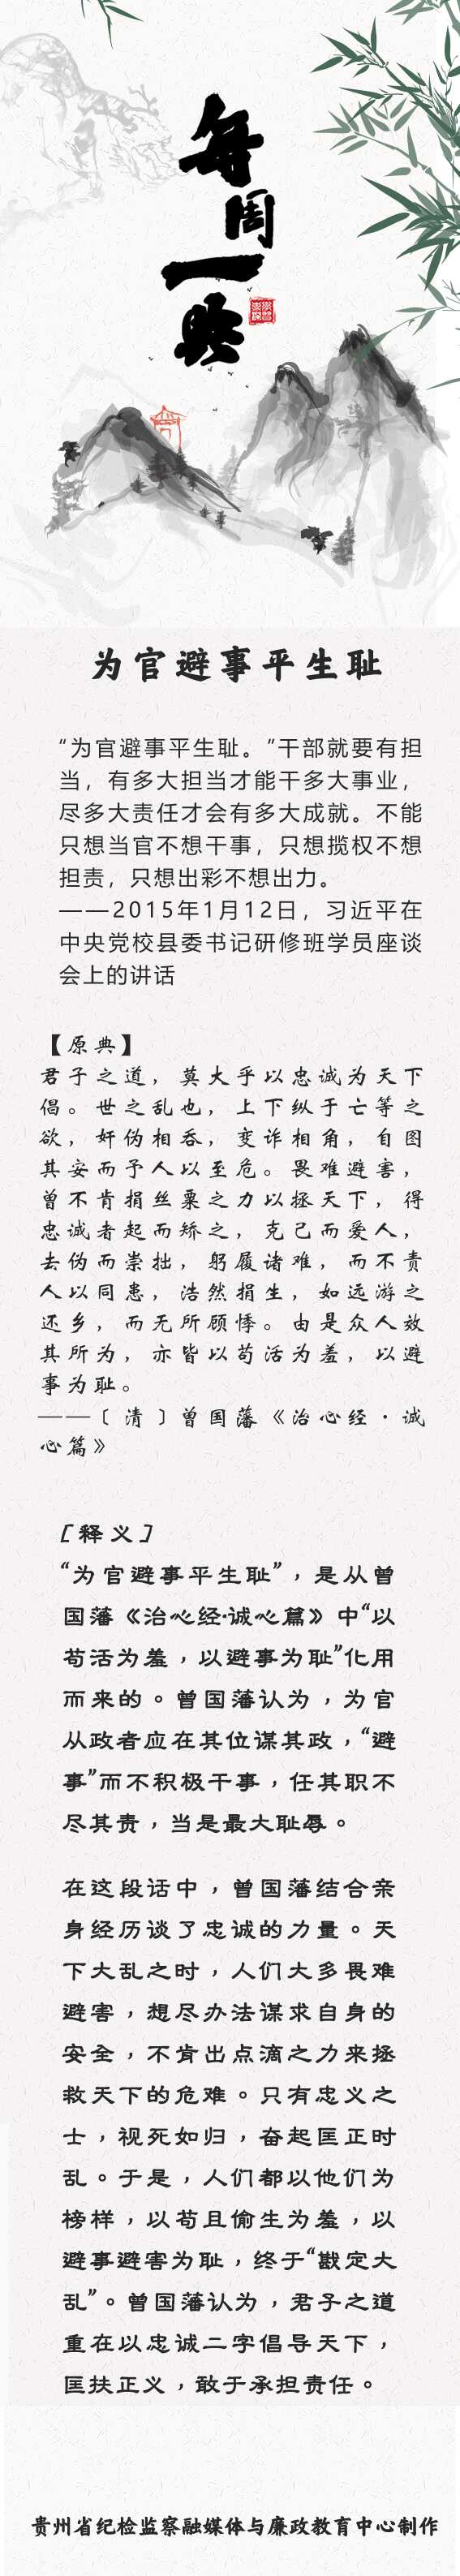 每
周
一
典
为官避事平生耻
“为官避事平生耻。”干部就要有担
当，有多大担当才能干多大事业，
尽多大责任才会有多大成就。不能
只想当官不想干事，只想揽权不想
担责，只想出彩不想出力。
——2015年1月12日，习近平在
中央党校县委书记研修班学员座谈
会上的讲话
【原典】
君子之道，莫大乎以忠诚为天下
倡。世之乱也，上下纵于亡等之
欲，奸伪相吞，变诈相角，自图
其安而予人以至危。畏难避害，
曾不肯捐丝粟之力以拯天下，得
忠诚者起而矫之，克己而爱人，
去伪而崇拙，躬履诸难，而不责
人以同患，浩然捐生，如远游之
还乡，而无所顾悸。由是众人效
其所为，亦皆以苟活为羞，以避
事为耻。
——〔清〕曾国藩《治心经·诚
心篇》
[释义]
“为官避事平生耻”，是从曾
国藩《治心经·诚心篇》中“以
苟活为羞，以避事为耻”化用
而来的。曾国藩认为，为官
从政者应在其位谋其政，“避
事”而不积极干事，任其职不
尽其责，当是最大耻辱。
在这段话中，曾国藩结合亲
身经历谈了忠诚的力量。天
下大乱之时，人们大多畏难
避害，想尽办法谋求自身的
安全，不肯出点滴之力来拯
救天下的危难。只有忠义之
士，视死如归，奋起匡正时
乱。于是，人们都以他们为
榜样，以苟且偷生为羞，以
避事避害为耻，终于“戡定大
乱”。曾国藩认为，君子之道
重在以忠诚二字倡导天下，
匡扶正义，敢于承担责任。
贵州省纪检监察融媒体与廉政教育中心制作